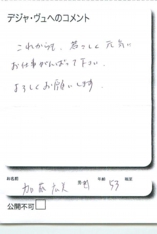 デジャ・ヴュへのコメント
これからも、若々しく元気に
お仕事がんばって下さい。
よろしくお願いします。
お名前 男 年齢 53
公開不可